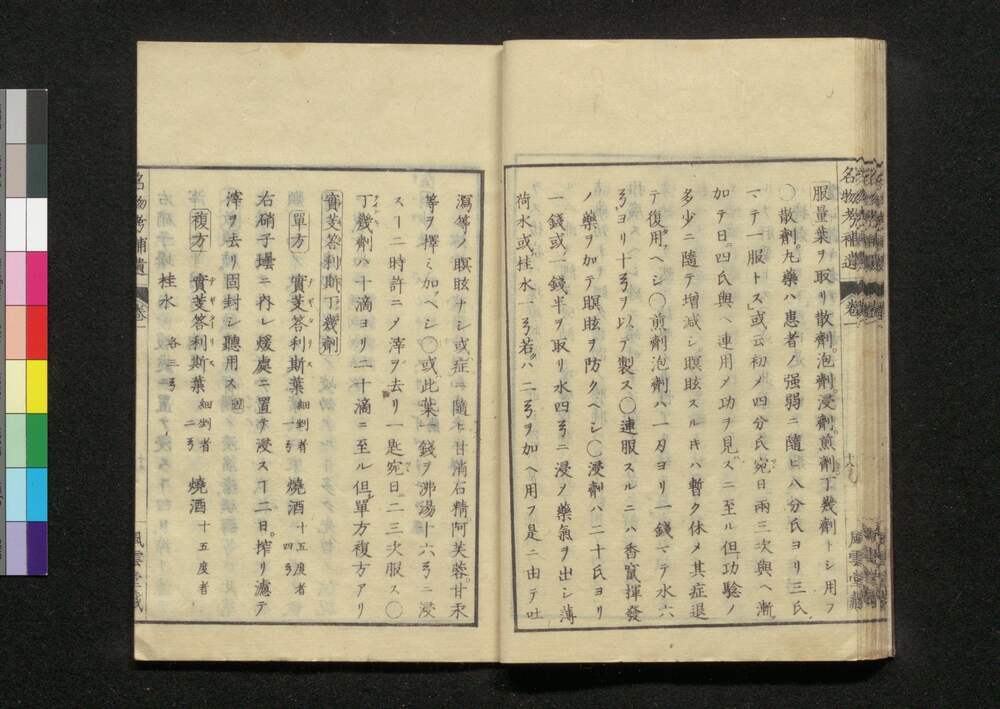 名物考補遺 卷一 十八 風雲堂藏
服量葉ヲ取リ散劑。泡劑浸劑。煎劑丁幾劑トシ用フ
〇散劑。丸藥ハ患者ノ强弱ニ隨ヒ八分氏ヨリ三氏
マテ一服トス」或云初メ四分氏宛日兩三次與ヘ漸
加テ日。四氏與ヘ連用メ功ヲ見ズニ至ル但功驗ノ
多少ニ隨テ增減シ瞑眩スルキハ暫ク休メ其症退
テ復用ヘシ〇煎劑泡劑ハ一刀ヨリ一錢マテ水六
ヨリ十ヲ以テ製ス〇連服スルニハ香竄揮發
ノ藥ヲ加テ瞑眩ヲ防クヘシ〇浸劑ハ二十氏ヨリ
一錢或一錢半ヲ取リ水四ニ浸ノ藥氣ヲ出シ薄
荷水或桂水一若ハ二ヲ加ヘ用フ是ニ由テ吐
瀉等ノ瞑眩ナシ或症ニ隨ヒ甘消石精阿芙蓉。甘汞
等ヲ擇ミ加ヘシ〇或此葉一錢ヲ沸湯十六ニ浸
ス一二時許ニノ滓ヲ去リ一匙宛日二三次服ス〇
丁幾劑ハ十滴ヨリ二十滴ニ至ル但單方複方アリ
實芰答利斯丁幾劑
單方 實芰答利斯葉 細剉者 一 燒酒 十五度者 四
右硝子壜ニ內レ煖處ニ置テ浸ス丁二日。搾リ濾テ
滓ヲ去リ固封シ聽用ス
複方 實芰答利斯葉 細剉者 二 燒酒 十五度者
桂水 各二
名物考補遺 卷一 風雲堂藏